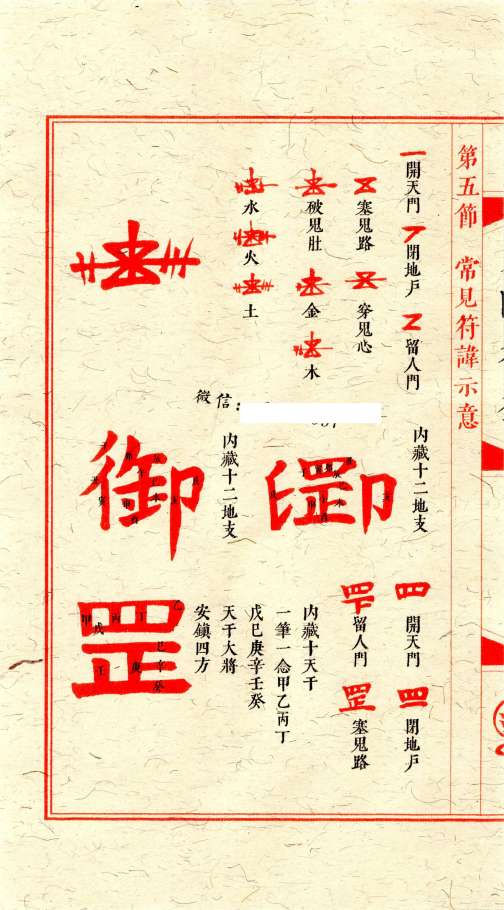 第五節 常見符諱示意
開天門
閉地戶
留人門
塞鬼路
穿鬼心
破鬼肚
金
木
水
火
土
微信:
内藏十二地支
内藏十二地支
御
開天門
閉地戶
留人門
塞鬼路
内藏十天干
一筆一念甲乙丙丁
戊己庚辛壬癸
天干大將
安鎮四方
罡
甲
乙
丙
丁
戊
己
庚
辛
壬
癸